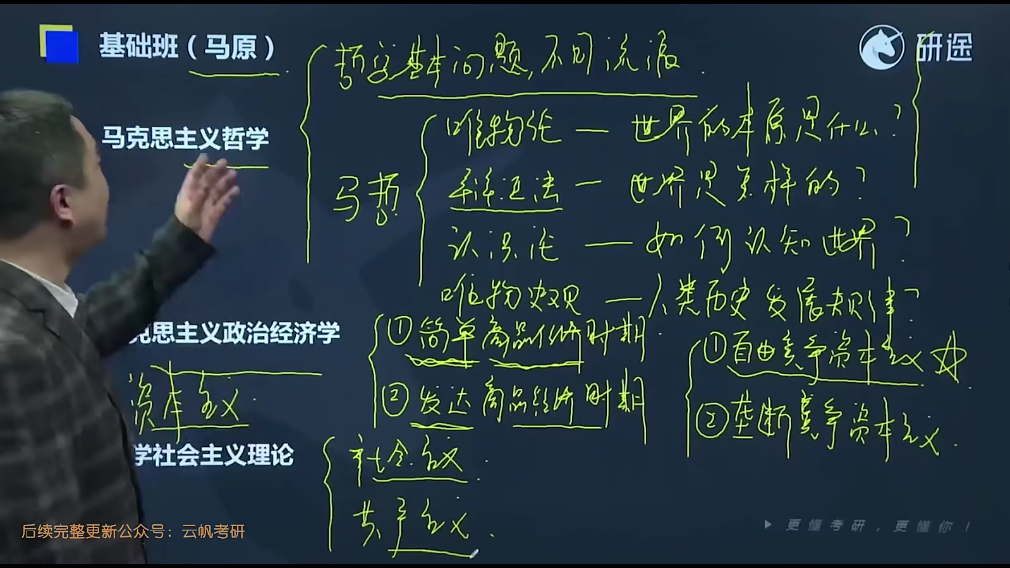 基础班（马原）
研途
哲学基本问题,不同流派.
马克思主义哲学
马哲
唯物论 — 世界的本原是什么?
辩证法 — 世界是怎样的?
认识论 — 如何认知世界?
唯物史观 — 人类历史发展规律?
克思主义政治经济学
资本主义.
①简单商品经济时期.
②发达商品经济时期
①自由竞争资本主义☆
②垄断竞争资本主义.
学社会主义理论
社会主义.
共产主义.
后续完整更新公众号：云帆考研
更懂考研，更懂你！